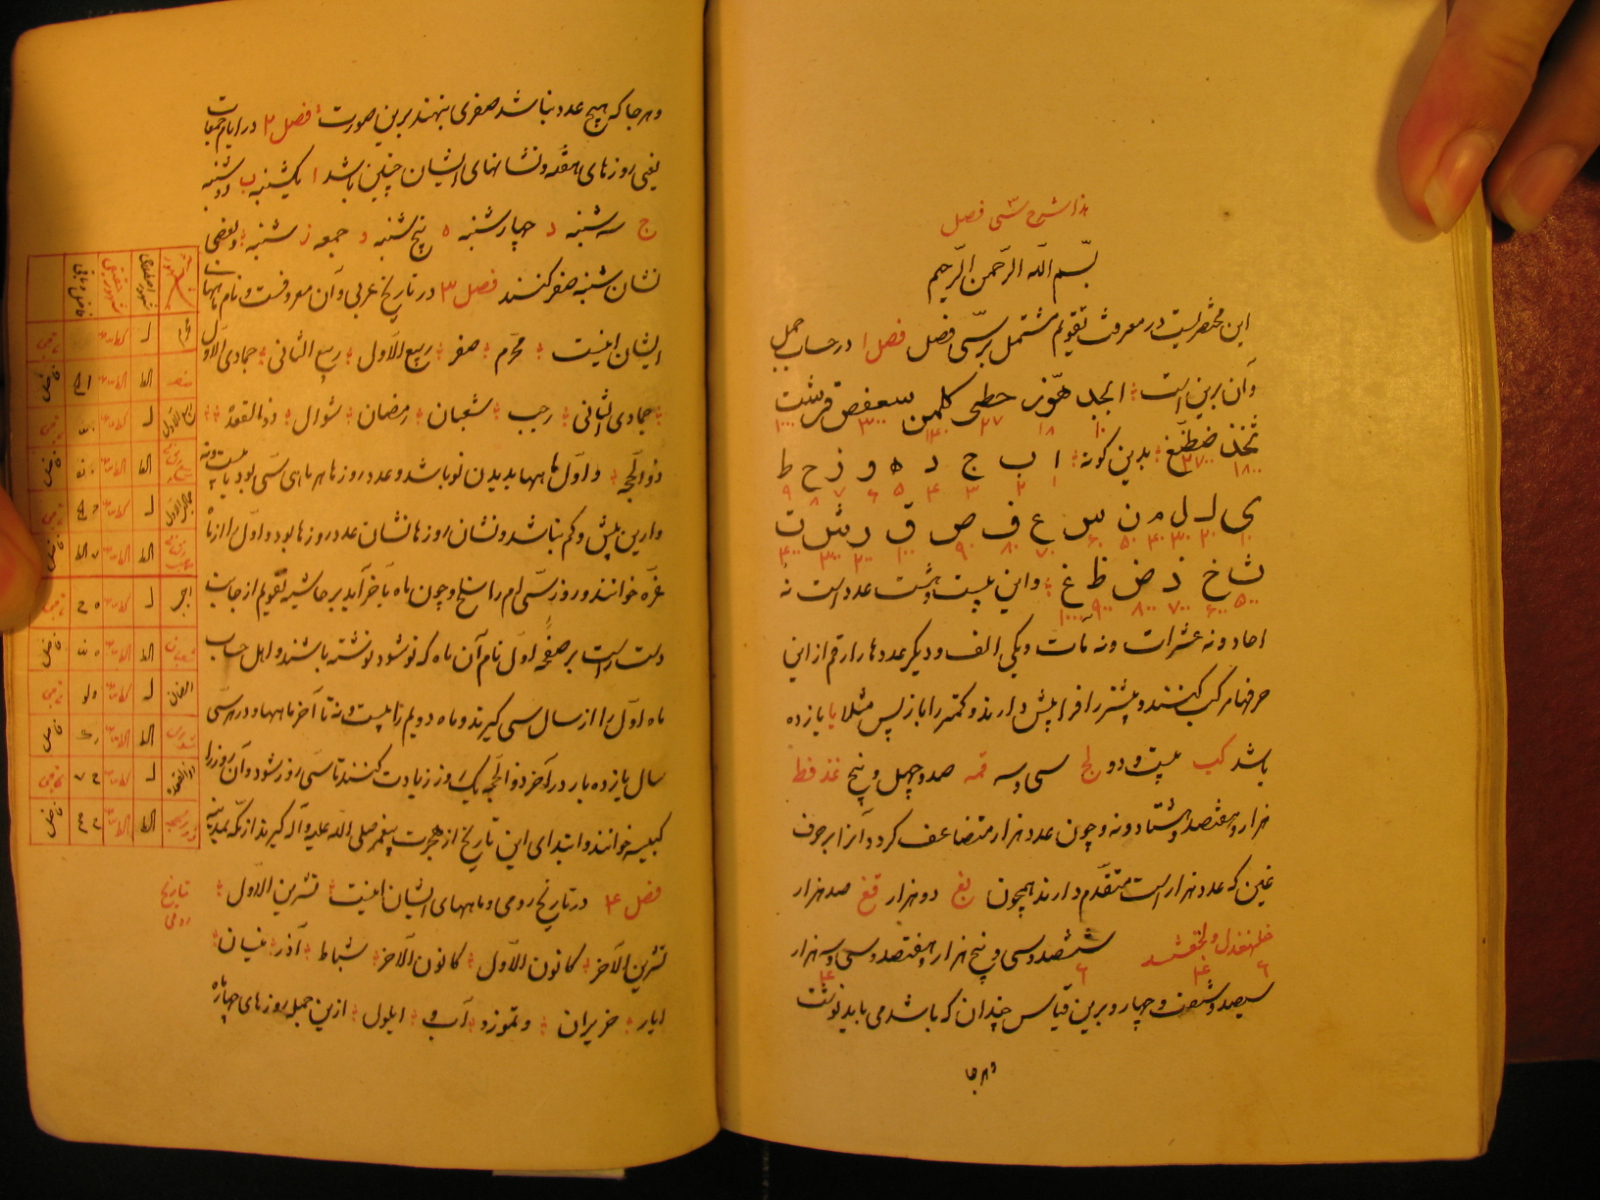 هذا شرح سی فصل
بسم الله الرحمن الرحیم
این مختصریست در معرفت تقویم مشتمل بر سی فصل فصل ۱ در حساب جمل
و آن برین است ابجد هوز حطی کلمن سعفص قرشت
ثخذ ضظغ بدین کونه ا ب ج د ه و ز ح ط
۱ ۲ ۳ ۴ ۵ ۶ ۷ ۸ ۹
ی ک ل م ن س ع ف ص ق ر ش ت
۱۰ ۲۰ ۳۰ ۴۰ ۵۰ ۶۰ ۷۰ ۸۰ ۹۰ ۱۰۰ ۲۰۰ ۳۰۰ ۴۰۰
ث خ ذ ض ظ غ و این بیست و هشت عدد است نه
۵۰۰ ۶۰۰ ۷۰۰ ۸۰۰ ۹۰۰ ۱۰۰۰
احاد و نه عشرات و نه مآت و یکی الف و دیکر عددها را رقم از این
حرفها مرکب کنند و بیشتر را فرا پیش دارند و کمتر را باز پس مثلا یا یازده
باشد کب بیست و دو لج سی و سه قمه صد و چهل و پنج غذفط
هزار و هفتصد و هشتاد و نه و چون عدد هزار متضاعف کردد آنرا بر حرف
غین که عدد هزار است متقدم دارند همچون بغ دو هزار قغ صد هزار
ششصد و سی و پنج هزار و هفتصد و سی و سه هزار
سیصد و شصت و چهار و برین قیاس چندان که باشد می باید نوشت
و هر جا
و هر جا که هیچ عدد نباشد صفری بنهند برین صورت فصل ۲ در ایام جمعات
یعنی روزهای هفته و نشانهای ایشان چنین باشد ا یکشنبه ب دوشنبه
ج سه شنبه د چهارشنبه ه پنج شنبه و جمعه ز شنبه و بعضی
نشان شنبه صفر کنند فصل ۳ در تاریخ عربی و آن معروفست و نام ماههای
ایشان اینست محرم صفر ربیع الاول ربیع الثانی جمادی الاول
جمادی الثانی رجب شعبان رمضان شوال ذوالقعدة
ذوالحجه و اول ماهها بدیدن نو باشد و عدد روزها هر ماهی سی بود یا بیست و نه
و از این بیش و کم نباشد و نشان روزها نشان عدد روزها بود و اول را از ماه
غره خوانند و روز سی ام را سلخ و چون ماه با خر آید بر حاشیه تقویم از جانب
دست راست بر صفحه اول نام آن ماه که نو شود نوشته باشند و اهل حساب
ماه اول را از سال سی کیرند و ماه دویم را بیست و نه تا آخر ماهها و در هر سی
سال یازده بار در آخر ذوالحجه یک روز زیادت کنند تا سی روز شود و آن روز را
کبیسه خوانند و ابتدای این تاریخ از هجرت پیغمبر صلی الله علیه و آله کیرند از مکه بمدینه
فصل ۴ در تاریخ رومی و ماههای ایشان اینست تشرین الاول
تشرین الاخر کانون الاول کانون الاخر شباط آذر نیسان
ایار حزیران و تموز و آب و ایلول ازین جمله روزهای چهار ماه
تاریخ
رومی
محرم
صفر
ربیع الاول
شعبان
رمضان
ذوالقعده